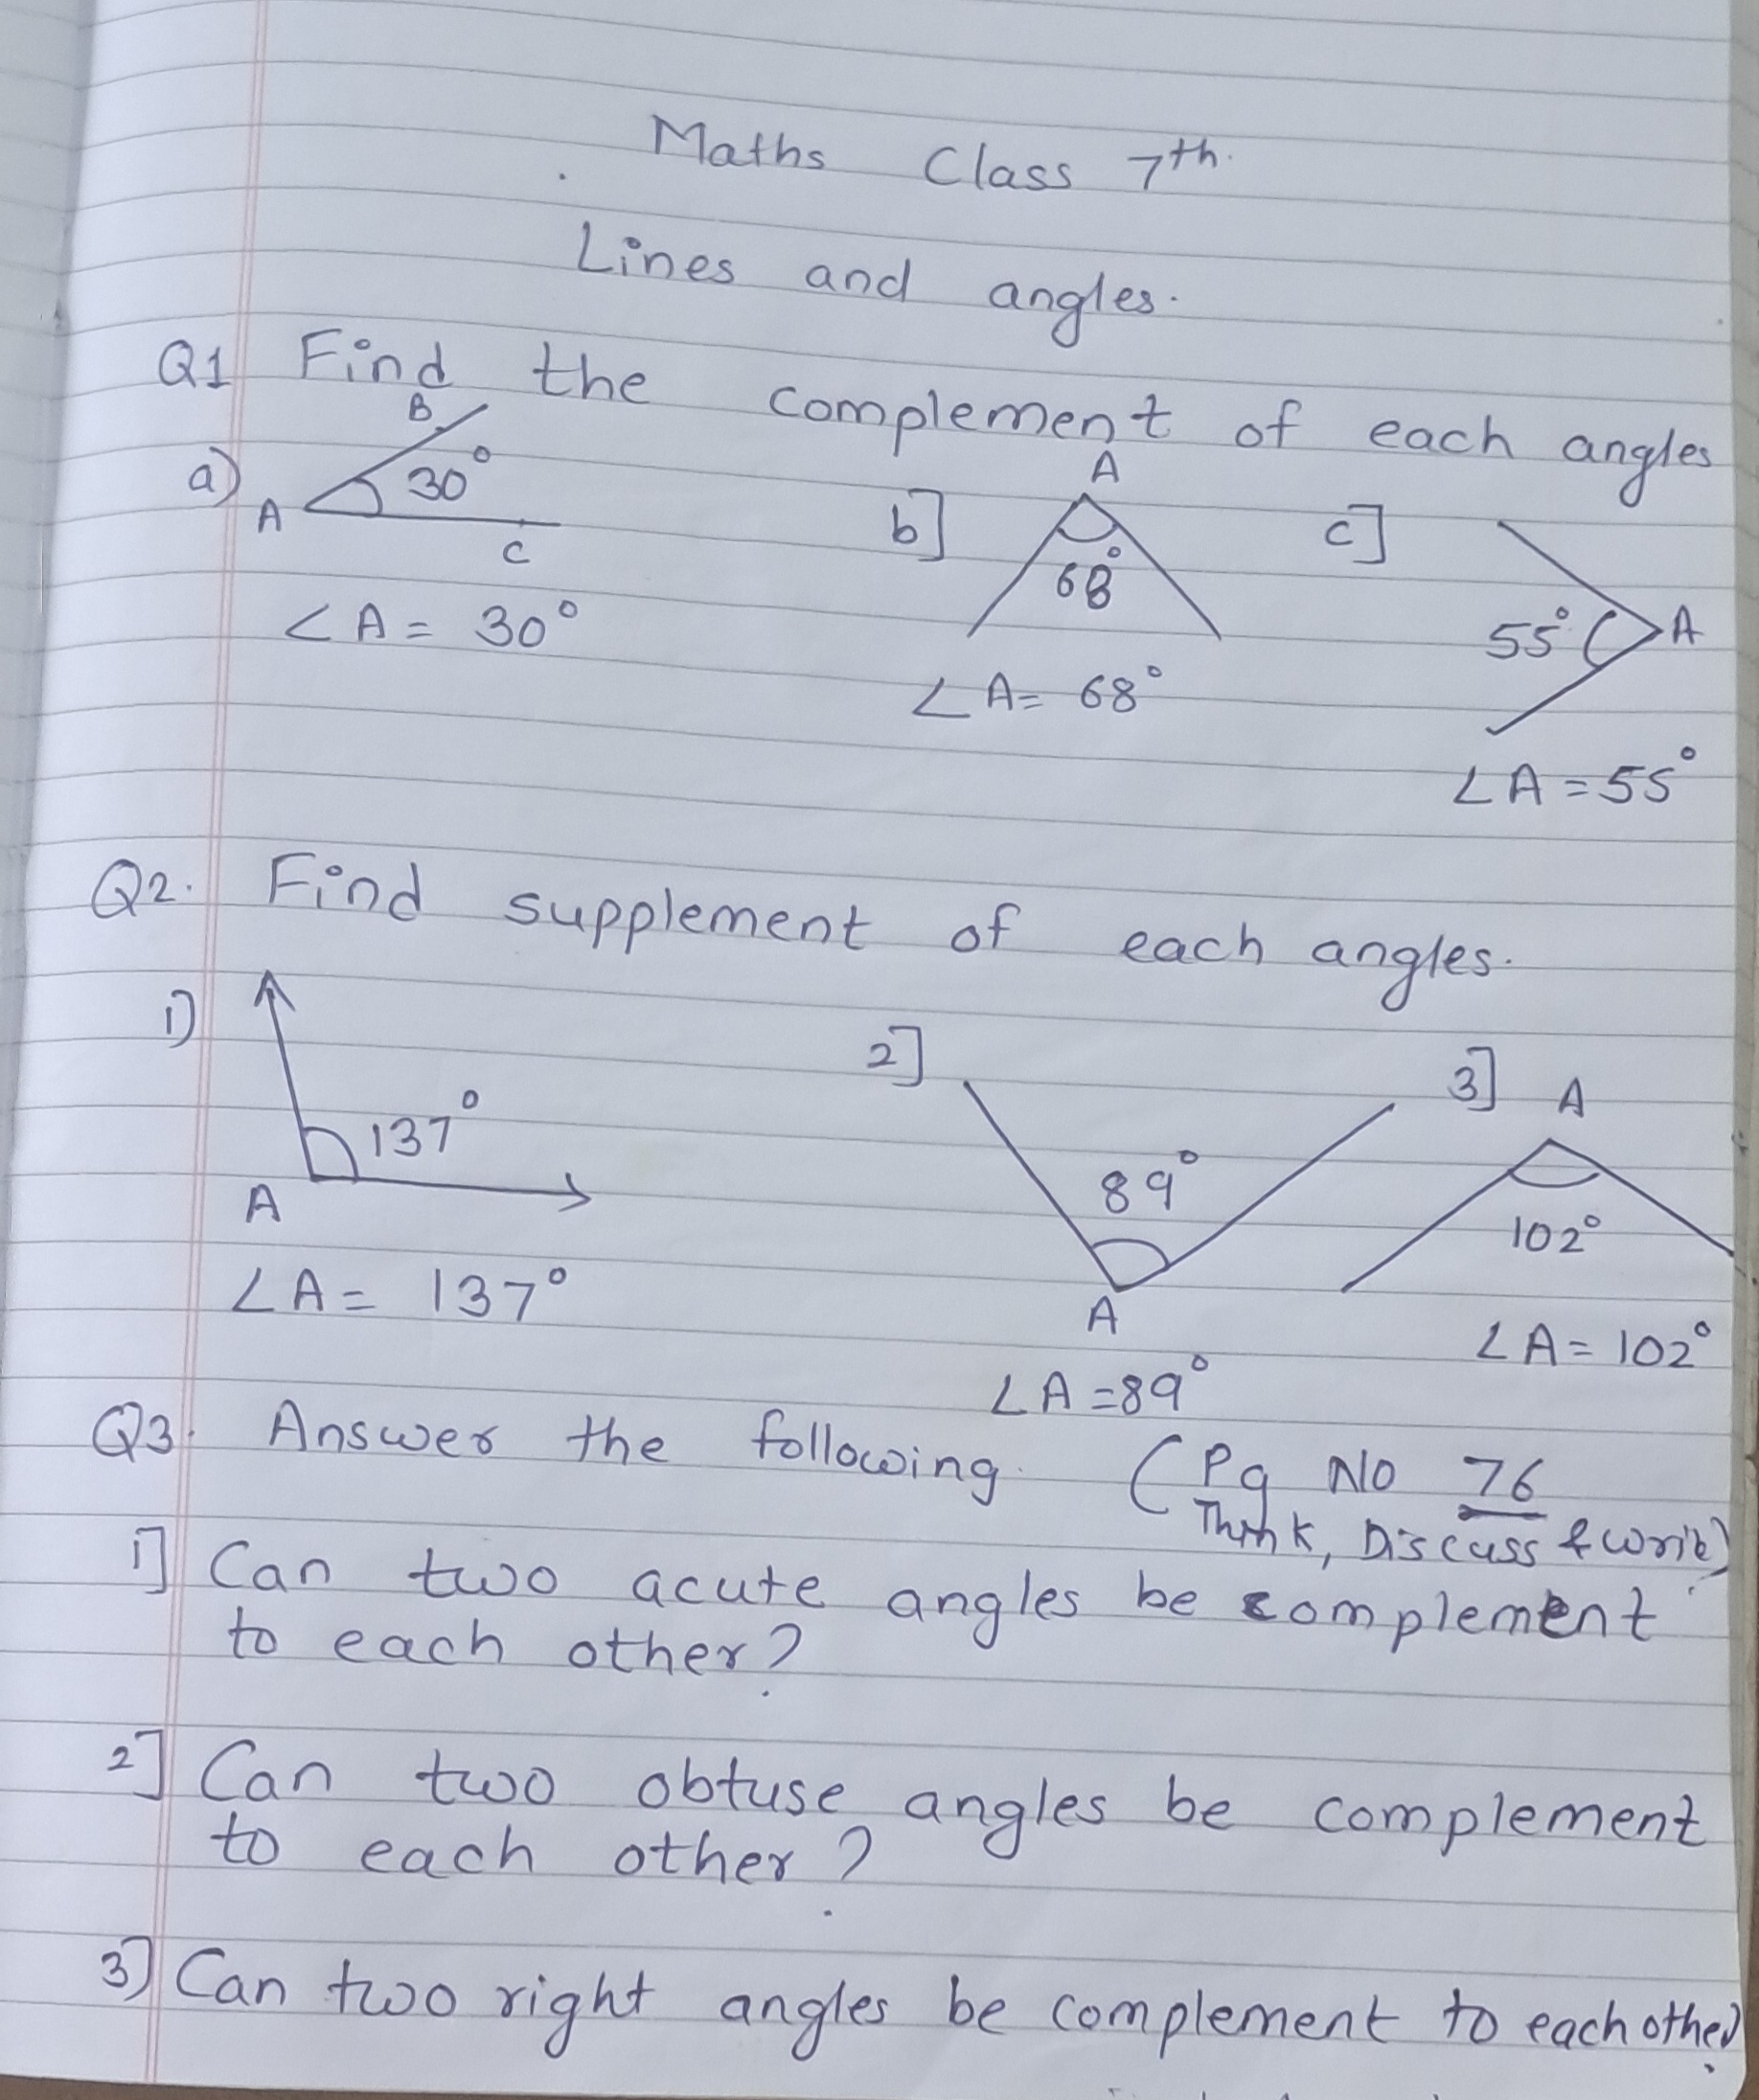 Maths Class 7th.
Lines and angles.
Q1 Find the complement of each angles
a) A B C 30°
∠A = 30°
b] A 68°
∠A = 68°
c] 55° A
∠A = 55°
Q2. Find supplement of each angles.
1) 137° A
∠A = 137°
2] 89° A
∠A = 89°
3] A 102°
∠A = 102°
Q3. Answer the following. (Pg No 76
Think, Discuss & write)
1] Can two acute angles be complement
to each other?
2] Can two obtuse angles be complement
to each other?
3] Can two right angles be complement to each other?